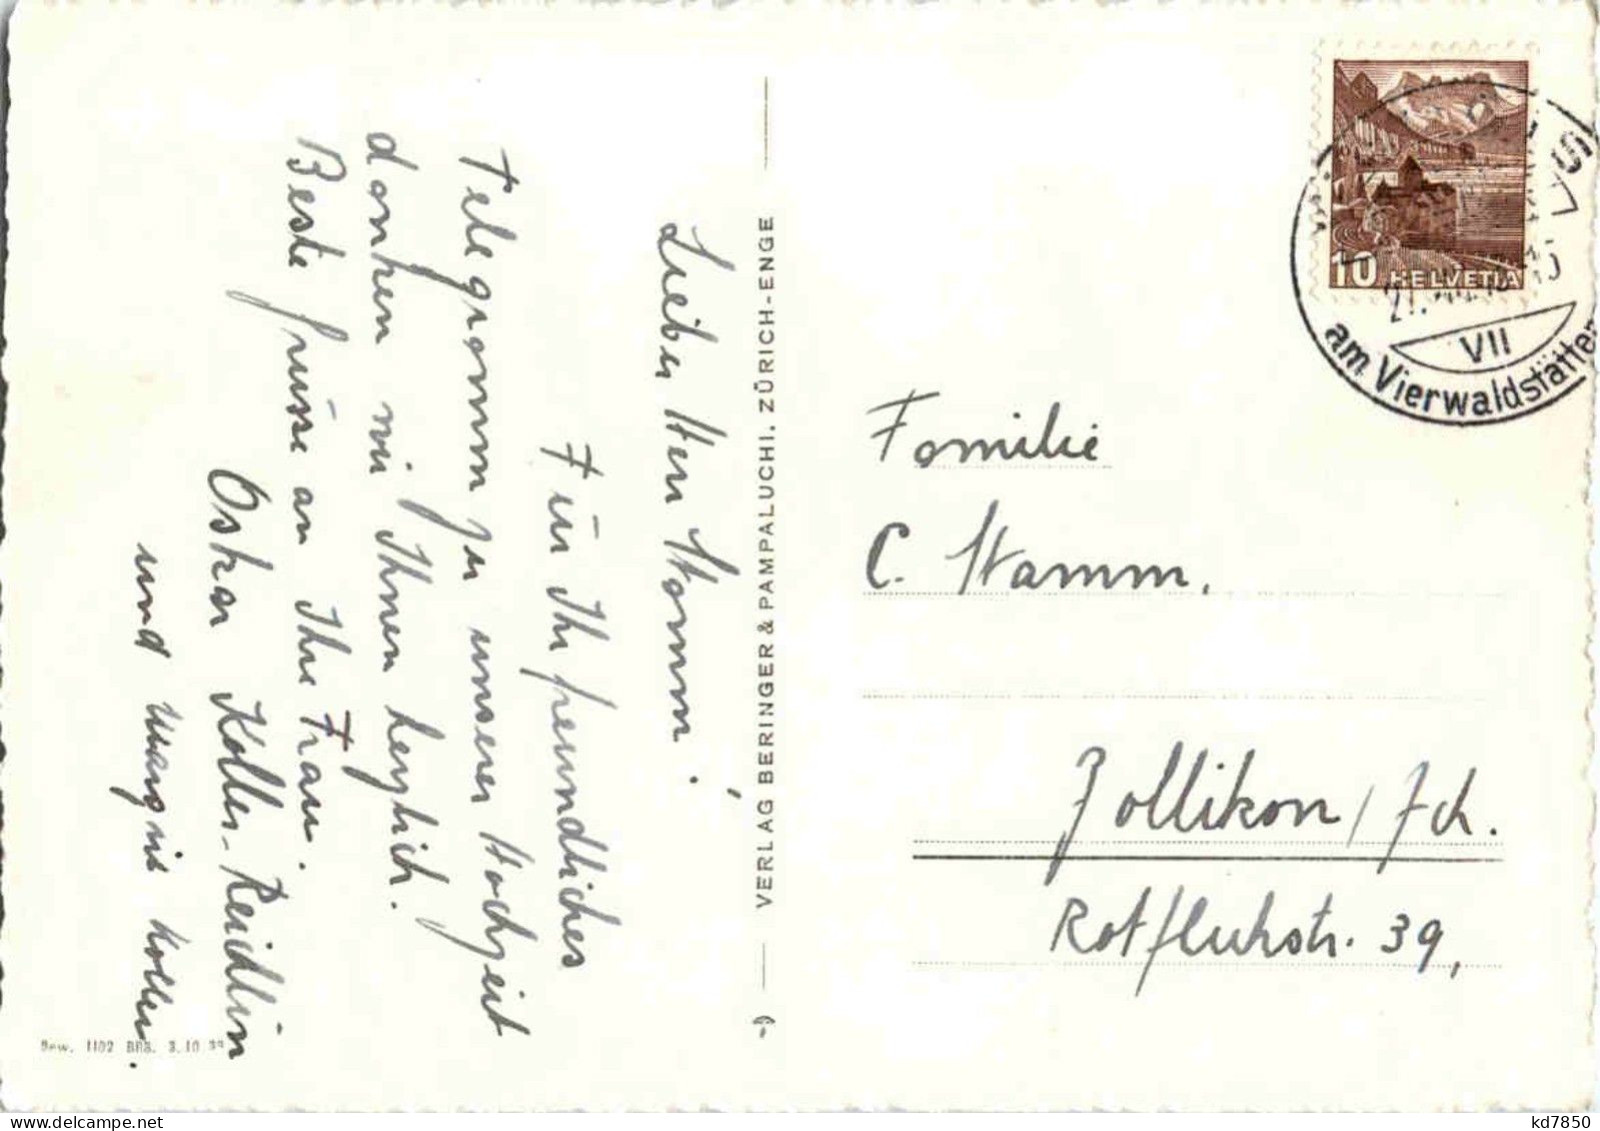 Lieber Herr Stamm,
Für Ihr freundliches
Telegramm zu unserer Hochzeit
danken wir Ihnen herzlich.
Beste Grüsse an Ihre Frau.
Oskar Koller-Reidlin
und Margrit Koller.
Bew. 1102 BRB. 3.10.39
VERLAG BERINGER & PAMPALUCHI, ZÜRICH-ENGE
10 HELVETIA
VII
am Vierwaldstätter
Familie
C. Stamm,
Zollikon/Zch.
Rotfluhstr. 39,
kd7850